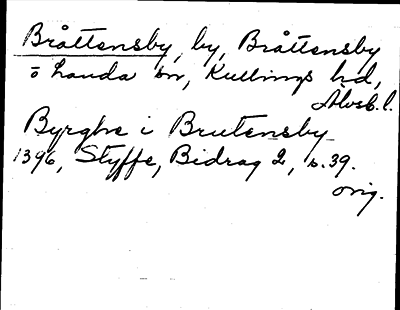 Bråttensby, by, Bråttensby
o Landa sn, Kullings hd,
Älvsb. l.
Byrghe i Brutensby
1396, Styffe, Bidrag 2, s. 39.
orig.